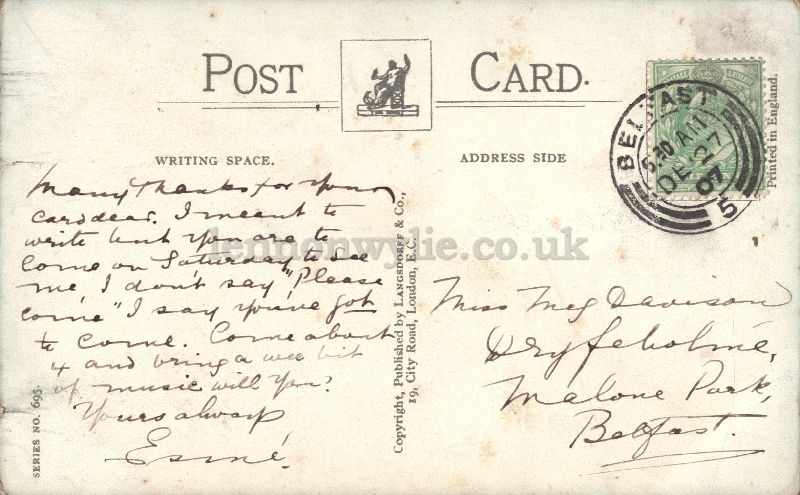 POST CARD.
WRITING SPACE.
ADDRESS SIDE
Many thanks for your
card dear. I meant to
write but you are to
come on Saturday to see
me I don't say "Please
come" I say you've got
to come. Come about
4 and bring a wee bit
of music will you?
Yours always
Esmé.
SERIES NO. 695.
Copyright, Published by LANGSDORFF & Co.,
19, City Road, London, E.C.
Miss Meg Davison
Dryfeholme,
Malone Park,
Belfast.
BELFAST
5.30 AM
DE 27
07
5
Printed in England.
lennonwylie.co.uk